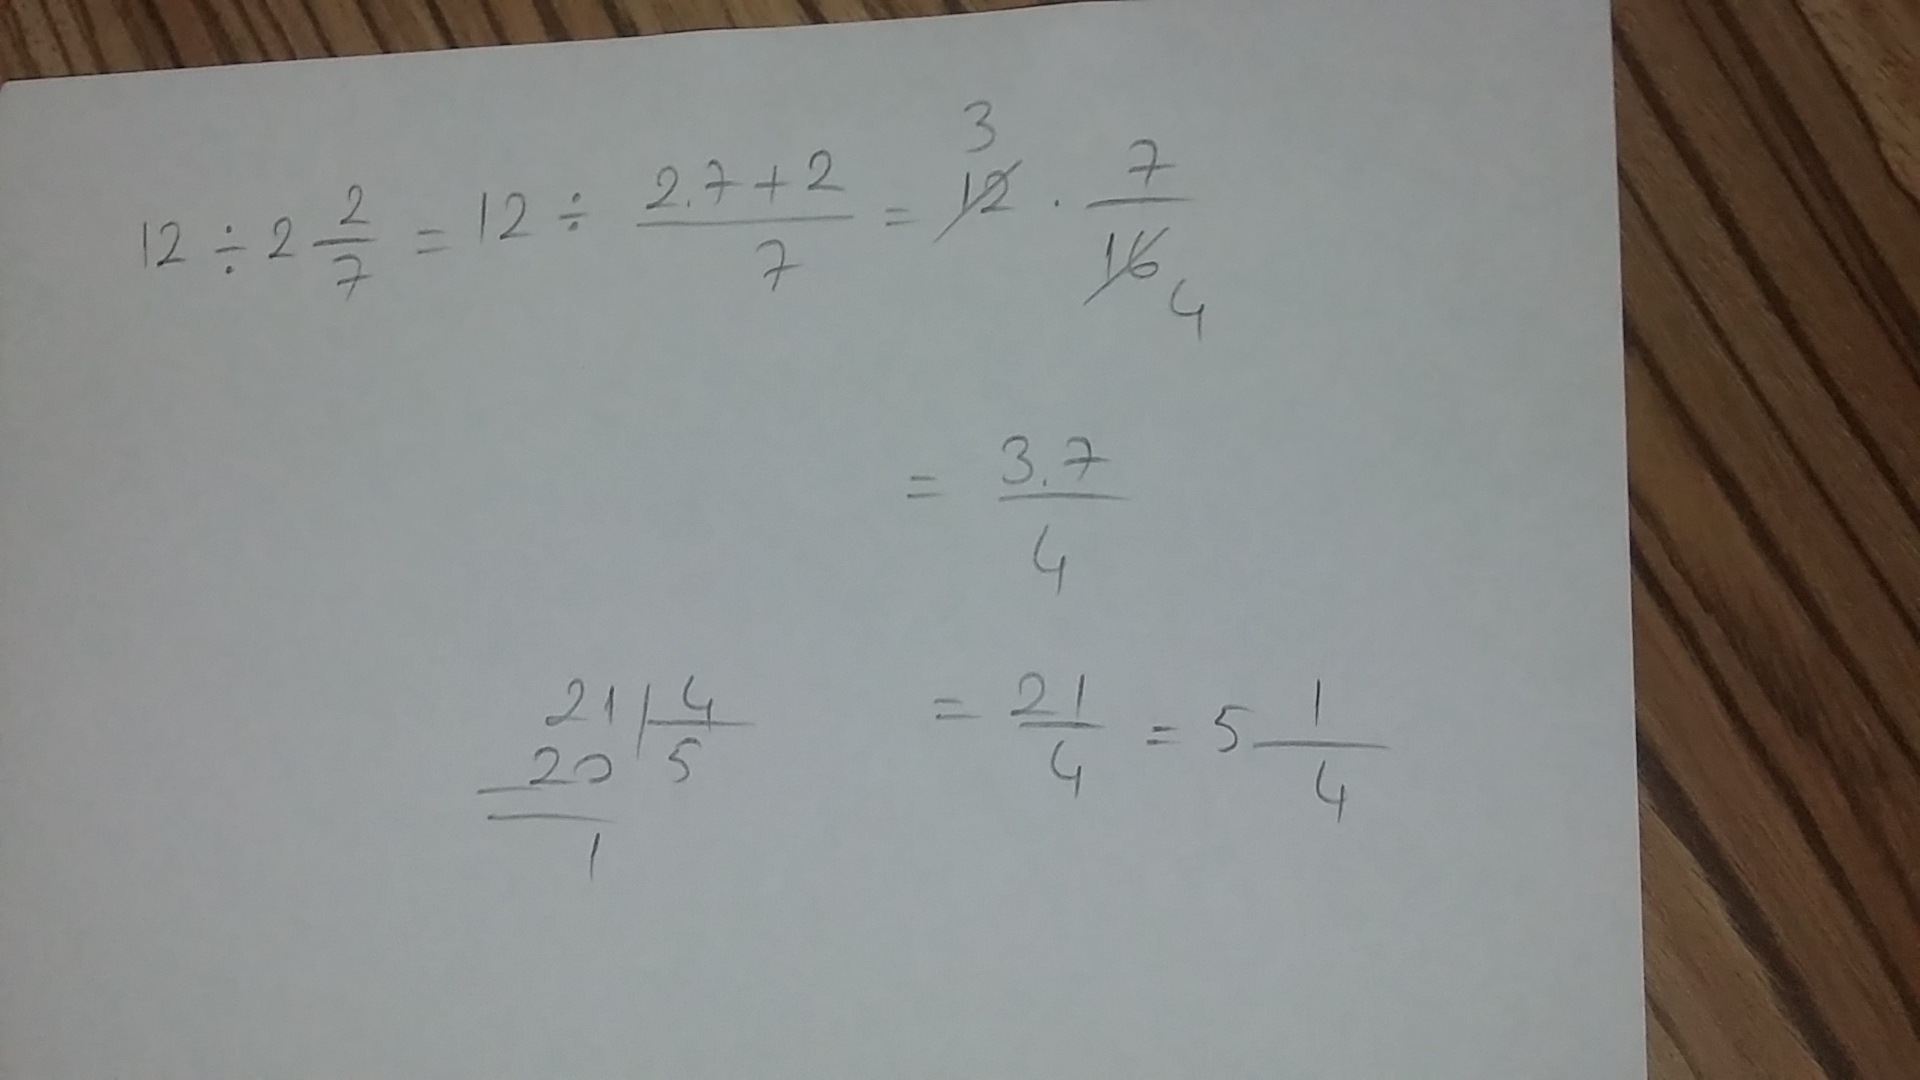 12 ÷ 2 2/7 = 12 ÷ (2.7+2)/7 = 3 12 · 7/16 4
= 3.7/4
21 | 4 = 21/4 = 5 1/4
20 5
1